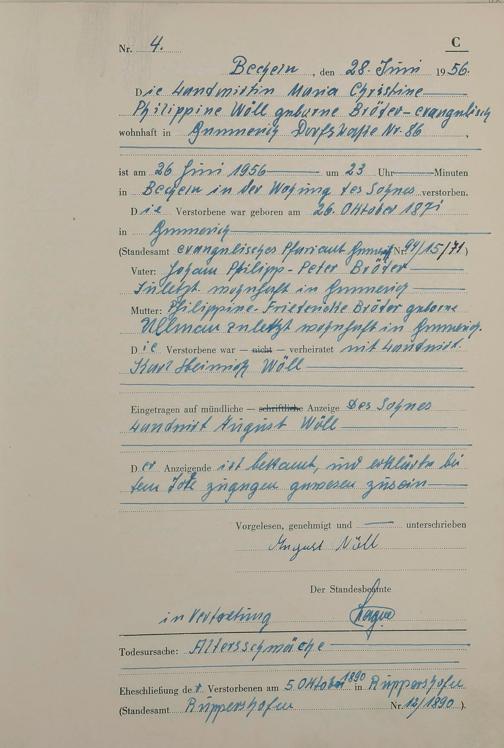 C
Nr. 4.
Bechen, den 28. Juni 1956.
Die Landwirtin Maria Christine
Philippine Wöll geborne Bröder-evangelisch
wohnhaft in Gemmerich Dorfstraße Nr. 86
ist am 26 Juni 1956 um 23 Uhr Minuten
in Bechen in der Wohnung des Sohnes verstorben.
Die Verstorbene war geboren am 26. Oktober 1871
in Gemmerich
(Standesamt evangelisches Pfarramt Nr. 94/15/71)
Vater: Johann Philipp-Peter Bröder
zuletzt wohnhaft in Gemmerich
Mutter: Philippine-Friederike Bröder geborne
Ullman zuletzt wohnhaft in Gemmerich.
Die Verstorbene war — nicht — verheiratet mit Landwirt
Karl Heinrich Wöll
Eingetragen auf mündliche — schriftliche Anzeige des Sohnes
Landwirt August Wöll
Der Anzeigende ist bekannt, und erklärte bei
dem Tode zugegen gewesen zu sein
Vorgelesen, genehmigt und unterschrieben
August Wöll
Der Standesbeamte
in Vertretung
Todesursache: Altersschwäche
Eheschließung der Verstorbenen am 5. Oktober 1890 in Ruppershofen
(Standesamt Ruppershofen Nr. 12/1890).